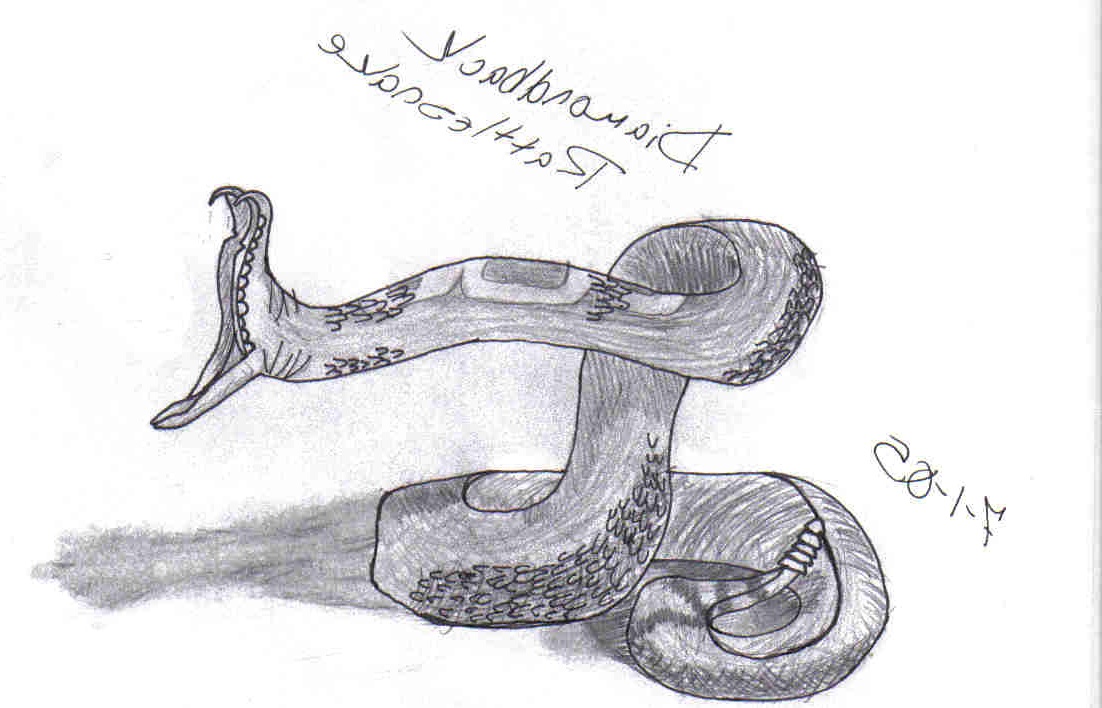 Diamondback
Rattlesnake
7-1-05